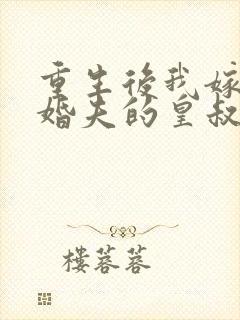 重生後我嫁
婚夫的皇叔
樓蓉蓉